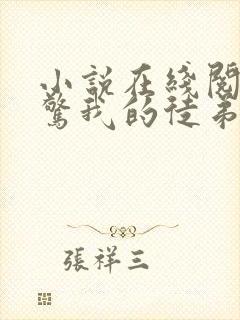 小說在綫閱
驚我的徒弟
張祥三